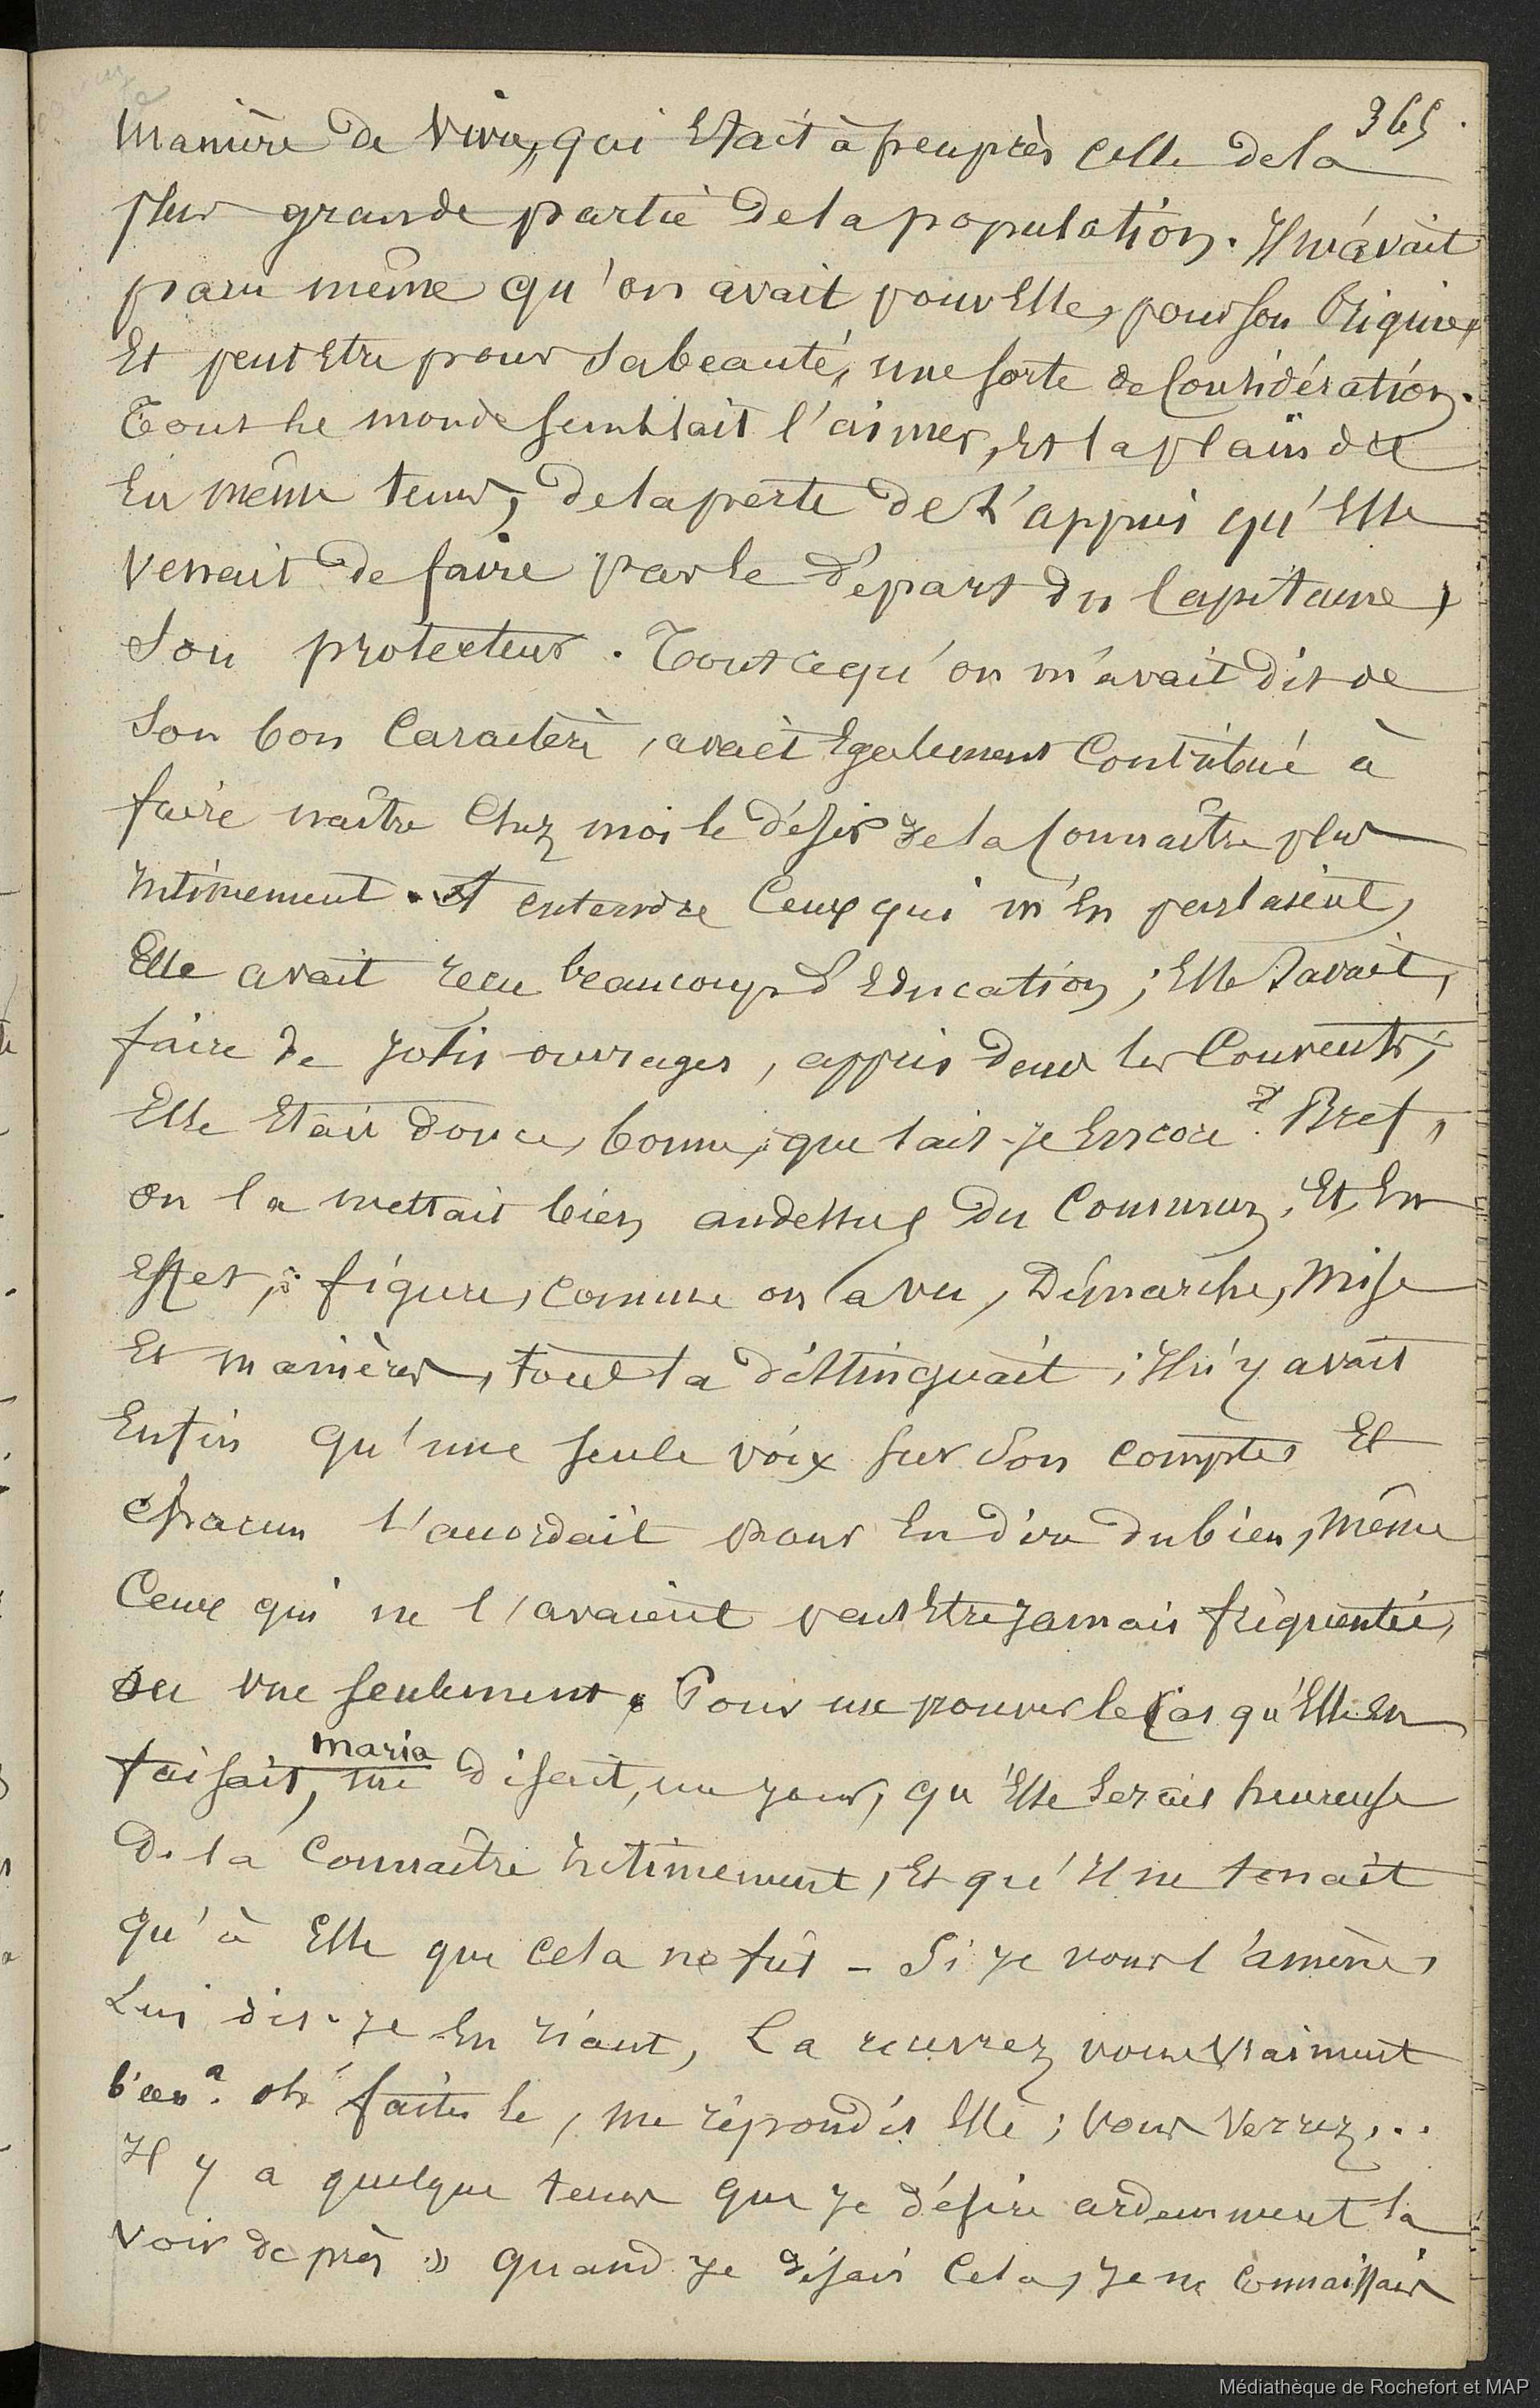 365.
manière de vivre, qui était à peuprès celle de la
plus grande partie de la population. Il m'avait
paru même qu'on avait pour Elle, pour son Origine,
Et peut Etre pour sa beauté, une sorte de Considération.
Tout le monde semblait l'aimer, Et la plaindre
En même tems, de la perte de l'appui qu'Elle
venait de faire par le départ du Capitaine,
Son protecteur. Tout ce qu'on m'avait dit de
Son bon Caractère, avait Egalement Contribué à
faire naître Chez moi le désir de la Connaître plus
intimement. et entendre Ceux qui m'En parlaient,
Elle avait reçu beaucoup d'Education; Elle Savait,
faire de jolis ouvrages, appris dans les Couvents;
Elle Etait douce, bonne, que sais-je Encore? Bref,
on la mettait bien audessus du Commun. Et, En
effet, figure, comme on l'a vu, Démarche, Mise
Et manières, tout la distinguait; Il n'y avait
Enfin qu'une seule voix sur Son compte, Et
chacun s'accordait pour En dire du bien, même
Ceux qui ne l'avaient peut Etre jamais fréquentée,
ou vue seulement. Pour me prouver le Cas qu'Elle En
faisait, maria me disait, un jour, qu'Elle Serait heureuse
de la Connaître intimement, Et qu'il ne tenait
qu'à Elle que Cela ne fût - Si je vous l'amène,
Lui dis-je En riant, La recevrez vous vraiment
bien? oh! faites le, me répondit Elle; vous verrez...
Il y a quelque tems que je désire ardemment la
voir de près » quand je disais Cela, je ne Connaissais
Médiathèque de Rochefort et MAP